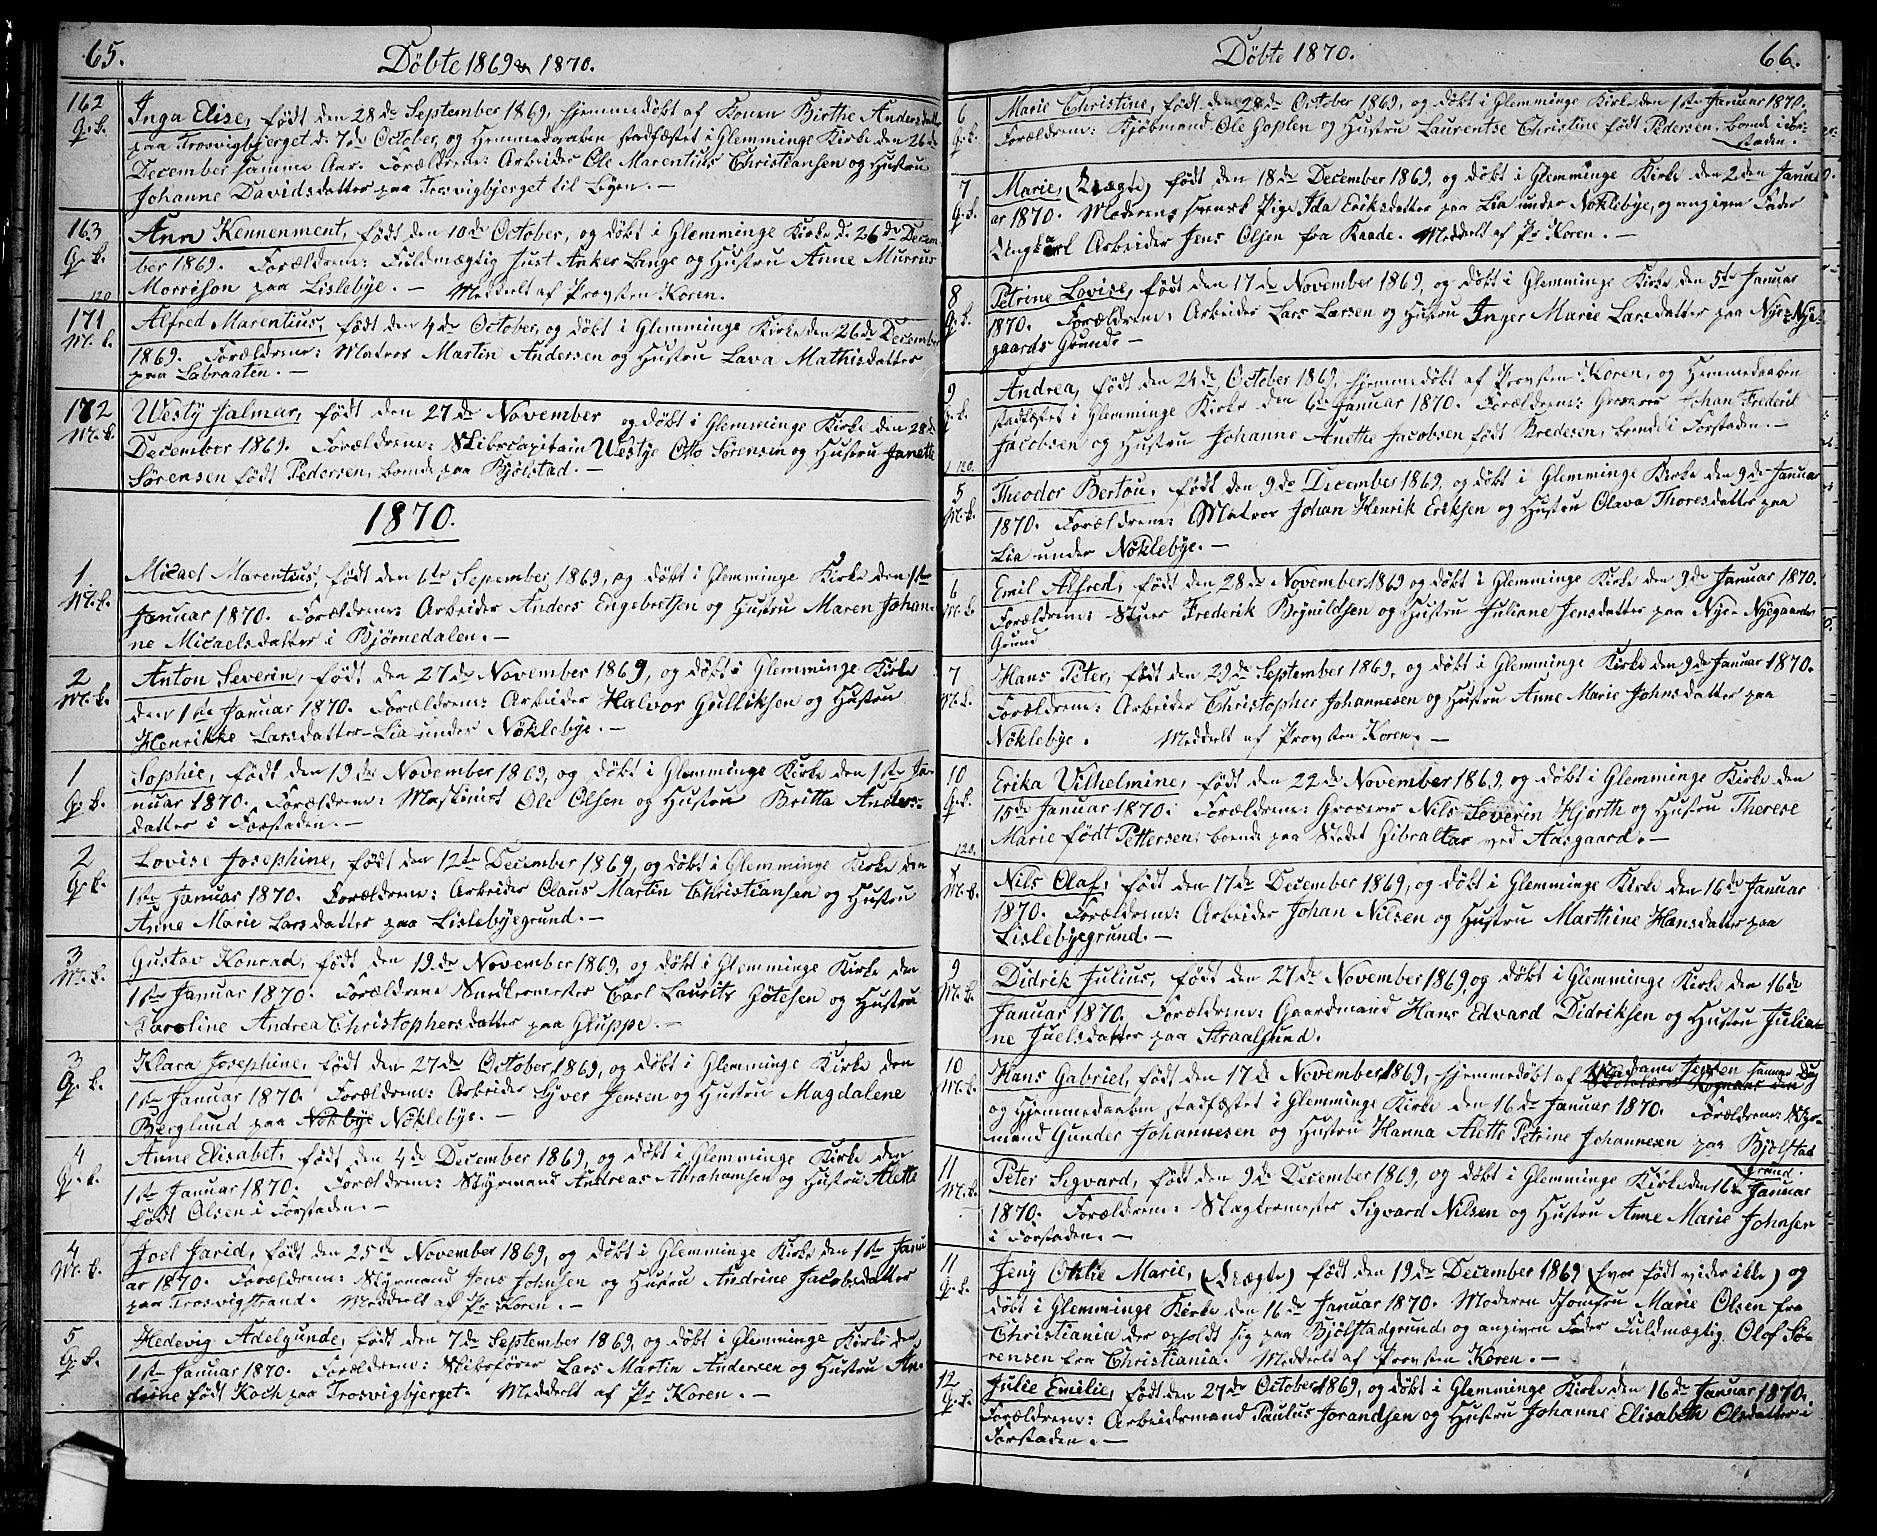 65.
Døbte 1869 & 1870.
162
G. b.
Inga Elise, født den 28de September 1869, hjemmedøbt af Konen Birthe Andersdatter
paa Trosvigbjerget d. 7de October, og Hemmedaaben stadfæstet i Glemminge Kirke den 26de
December samme Aar. Forældrene: Arbeider Ole Marentius Christiansen og Hustru
Johanne Davidsdatter paa Trosvigbjerget til Byen. —
163
G. b.
Ann Kennenment, født den 10de October, og døbt i Glemminge Kirke d. 26de Decem-
ber 1869. Forældrene: Fuldmægtig Just Anker Lange og Hustru Anne Murrus
120
Morrison paa Lislebye. — Meddelt af Provsten Koren.
171
M. b.
Alfred Marentius, født den 4de October, og døbt i Glemminge Kirke den 26de December
1869. Forældrene: Matros Martin Andersen og Hustru Lava Mathisdatter
paa Labraaten. —
172
M. b.
Westy Jalmar, født den 27de November og døbt i Glemminge Kirke den 28de
December 1869. Forældrene: Skibscapitain Westye Otto Sørensen og Hustru Janette
Sørensen født Pedersen, boende paa Bjølstad. —
1870.
1
M. b.
Micael Marentius, født den 1ste Sepember 1869, og døbt i Glemminge Kirke den 1ste
Januar 1870. Forældrene: Arbeider Anders Engebretsen og Hustru Maren Johan-
ne Micaelsdatter i Bjørnedalen. —
2
M. b.
Anton Severin, født den 27de November 1869, og døbt i Glemminge Kirke
den 1ste Januar 1870. Forældrene: Arbeider Halvor Gulliksen og Hustru
Henrikke Larsdatter Lia under Nøklebye. —
1
G. b.
Sophie, født den 19de November 1869, og døbt i Glemminge Kirke den 1ste Ja-
nuar 1870. Forældrene: Maskinist Ole Olsen og Hustru Britta Anders-
datter i Forstaden. —
2
G. b.
Lovise Josephine, født den 12te December 1869, og døbt i Glemminge Kirke den
1ste Januar 1870. Forældrene: Arbeider Claus Martin Christiansen og Hustru
Anne Marie Larsdatter paa Lislebyegrund. —
3
M. b.
Gustav Konrad, født den 19de November 1869, og døbt i Glemminge Kirke den
1ste Januar 1870. Forældrene Snedkermester Carl Laurits Jotesen og Hustru
Karoline Andrea Christophersdatter paa Gluppe. —
3
G. b.
Klara Josephine, født den 27de October 1869, og døbt i Glemminge Kirke den
1ste Januar 1870. Forældrene: Arbeider Syver Jensen og Hustru Magdalene
Berglund paa Nøkbye Nøklebye. —
4
G. b.
Anne Elisabet, født den 4de December 1869, og døbt i Glemminge Kirke den
1ste Januar 1870. Forældrene: Styrmand Andreas Abrahamsen og Hustru Alette
født Olsen i Forstaden. —
4
M. b.
Joel Jarid, født den 25de November 1869, og døbt i Glemminge Kirke den 1ste Janu
ar 1870. Forældrene: Styrmand Jens Johnsen og Hustru Andrine Jacobsdatter
paa Trosvigstrand. Meddelt af Pr. Koren. —
5
G. b.
Hedevig Adelgunde, født den 7de September 1869, og døbt i Glemminge Kirke den
1ste Januar 1870. Forældrene: Skibsfører Lars Martin Andersen og Hustru An
drine født Koch paa Trosvigbjerget. Meddelt af Pr Koren. —
Døbte 1870.
66.
6
G. b.
Marie Christine, født 28de October 1869, og døbt i Glemminge Kirke den 1ste Januar 1870.
Forældrene: Kjøbmand Ole Goplen og Hustru Laurentse Christine født Pedersen, boende i For-
staden.
7
G. b.
Marie, (Uægte) født den 18de December 1869, og døbt i Glemminge Kirke den 2den Janu
ar 1870. Moderen svensk Pige Ida Eriksdatter paa Lia under Nøklebye, og angiven Fader
Ungkarl Arbeider Jens Olsen fra Raade. Meddelt af Pr Koren. —
8
G. b.
Petrine Lovise, født den 17de November 1869, og døbt i Glemminge Kirke den 5te Januar
1870. Forældrene: Arbeider Lars Larsen og Hustru Inger Marie Larsdatter paa Nye-Nye-
gaards Grund. —
9
G. b.
Andrea, født den 24de October 1869, hjemmedøbt af Provsten Koren, og Hemmedaaben
stadfæstet i Glemminge Kirke den 6te Januar 1870. Forældrene: Graver Johan Frederik
Jacobsen og Hustru Johanne Anethe Jacobsen født Bredesen, boende i Forstaden. —
120.
5
M. b.
Theodor Bertou, født den 9de December 1869, og døbt i Glemminge Kirke den 9de Januar
1870. Forældrene: Matros Johan Henrik Eriksen og Hustru Olava Thoresdatter paa
Lia under Nøklebye. —
6
M. b.
Emil Alfred, født den 28de November 1869 og døbt i Glemminge Kirke den 9de Januar 1870.
Forældrene: Stuer Frederik Brynildsen og Hustru Juliane Jensdatter paa Nye-Nyegaards
Grund
7
M. b.
Hans Peter, født den 29de September 1869, og døbt i Glemminge Kirke den 9de Januar 1870.
Forældrene: Arbeider Christopher Johannesen og Hustru Anne Marie Johnsdatter paa
Nøklebye. Meddelt af Provsten Koren. —
10
G. b.
Erika Vilhelmine, født den 22de November 1869, og døbt i Glemminge Kirke den
15de Januar 1870. Forældrene: Groserer Nils Severin Hjorth og Hustru Therese
120.
Marie født Pettersen, boende paa Stedet Gibraltar ved Aasgaard. —
8
M. b.
Nils Olaf, født den 17de December 1869, og døbt i Glemminge Kirke den 16de Januar
1870. Forældrene: Arbeider Johan Nilsen og Hustru Marthine Hansdatter paa
Lislebyegrund. —
9
M. b.
Didrik Julius, født den 27de November 1869, og døbt i Glemminge Kirke den 16de
Januar 1870. Forældrene: Gaardmand Hans Edvard Didriksen og Hustru Julia-
ne Juelsdatter paa Straalsund.
10
M. b.
Hans Gabriel, født den 17de November 1869, hjemmedøbt af Madame Jensen samme Dag
og Hjemmedaaben stadfæstet i Glemminge Kirke den 16de Januar 1870. Forældrene: Styr-
mand Gunder Johannesen og Hustru Hanna Alette Petrine Johannesen paa Bjølstad
Grund.
11
M. b.
Peter Sigvard, født den 9de December 1869, og døbt i Glemminge Kirke den 16de Januar
1870. Forældrene: Slagtermester Sigvard Nilsen og Hustru Anne Marie Johnsen
i Forstaden. —
11
G. b.
Jeny Otilie Marie, (Uægte) født den 19de December 1869 (hvor født vides ikke) og
døbt i Glemminge Kirke den 16de Januar 1870. Moderen Jomfru Marie Olsen fra
Christiania der opholdt sig paa Bjølstadgrund, og angiven Fader Fuldmægtig Olaf Sø-
rensen fra Christiania. Meddelt af Provsten Koren. —
12
G. b.
Julie Emilie, født den 27de October 1869, og døbt i Glemminge Kirke den 16de Januar 1870.
Forældrene: Arbeidsmand Paulus Jorandsen og Hustru Johanne Elisabeth Olsdatter i
Forstaden. —